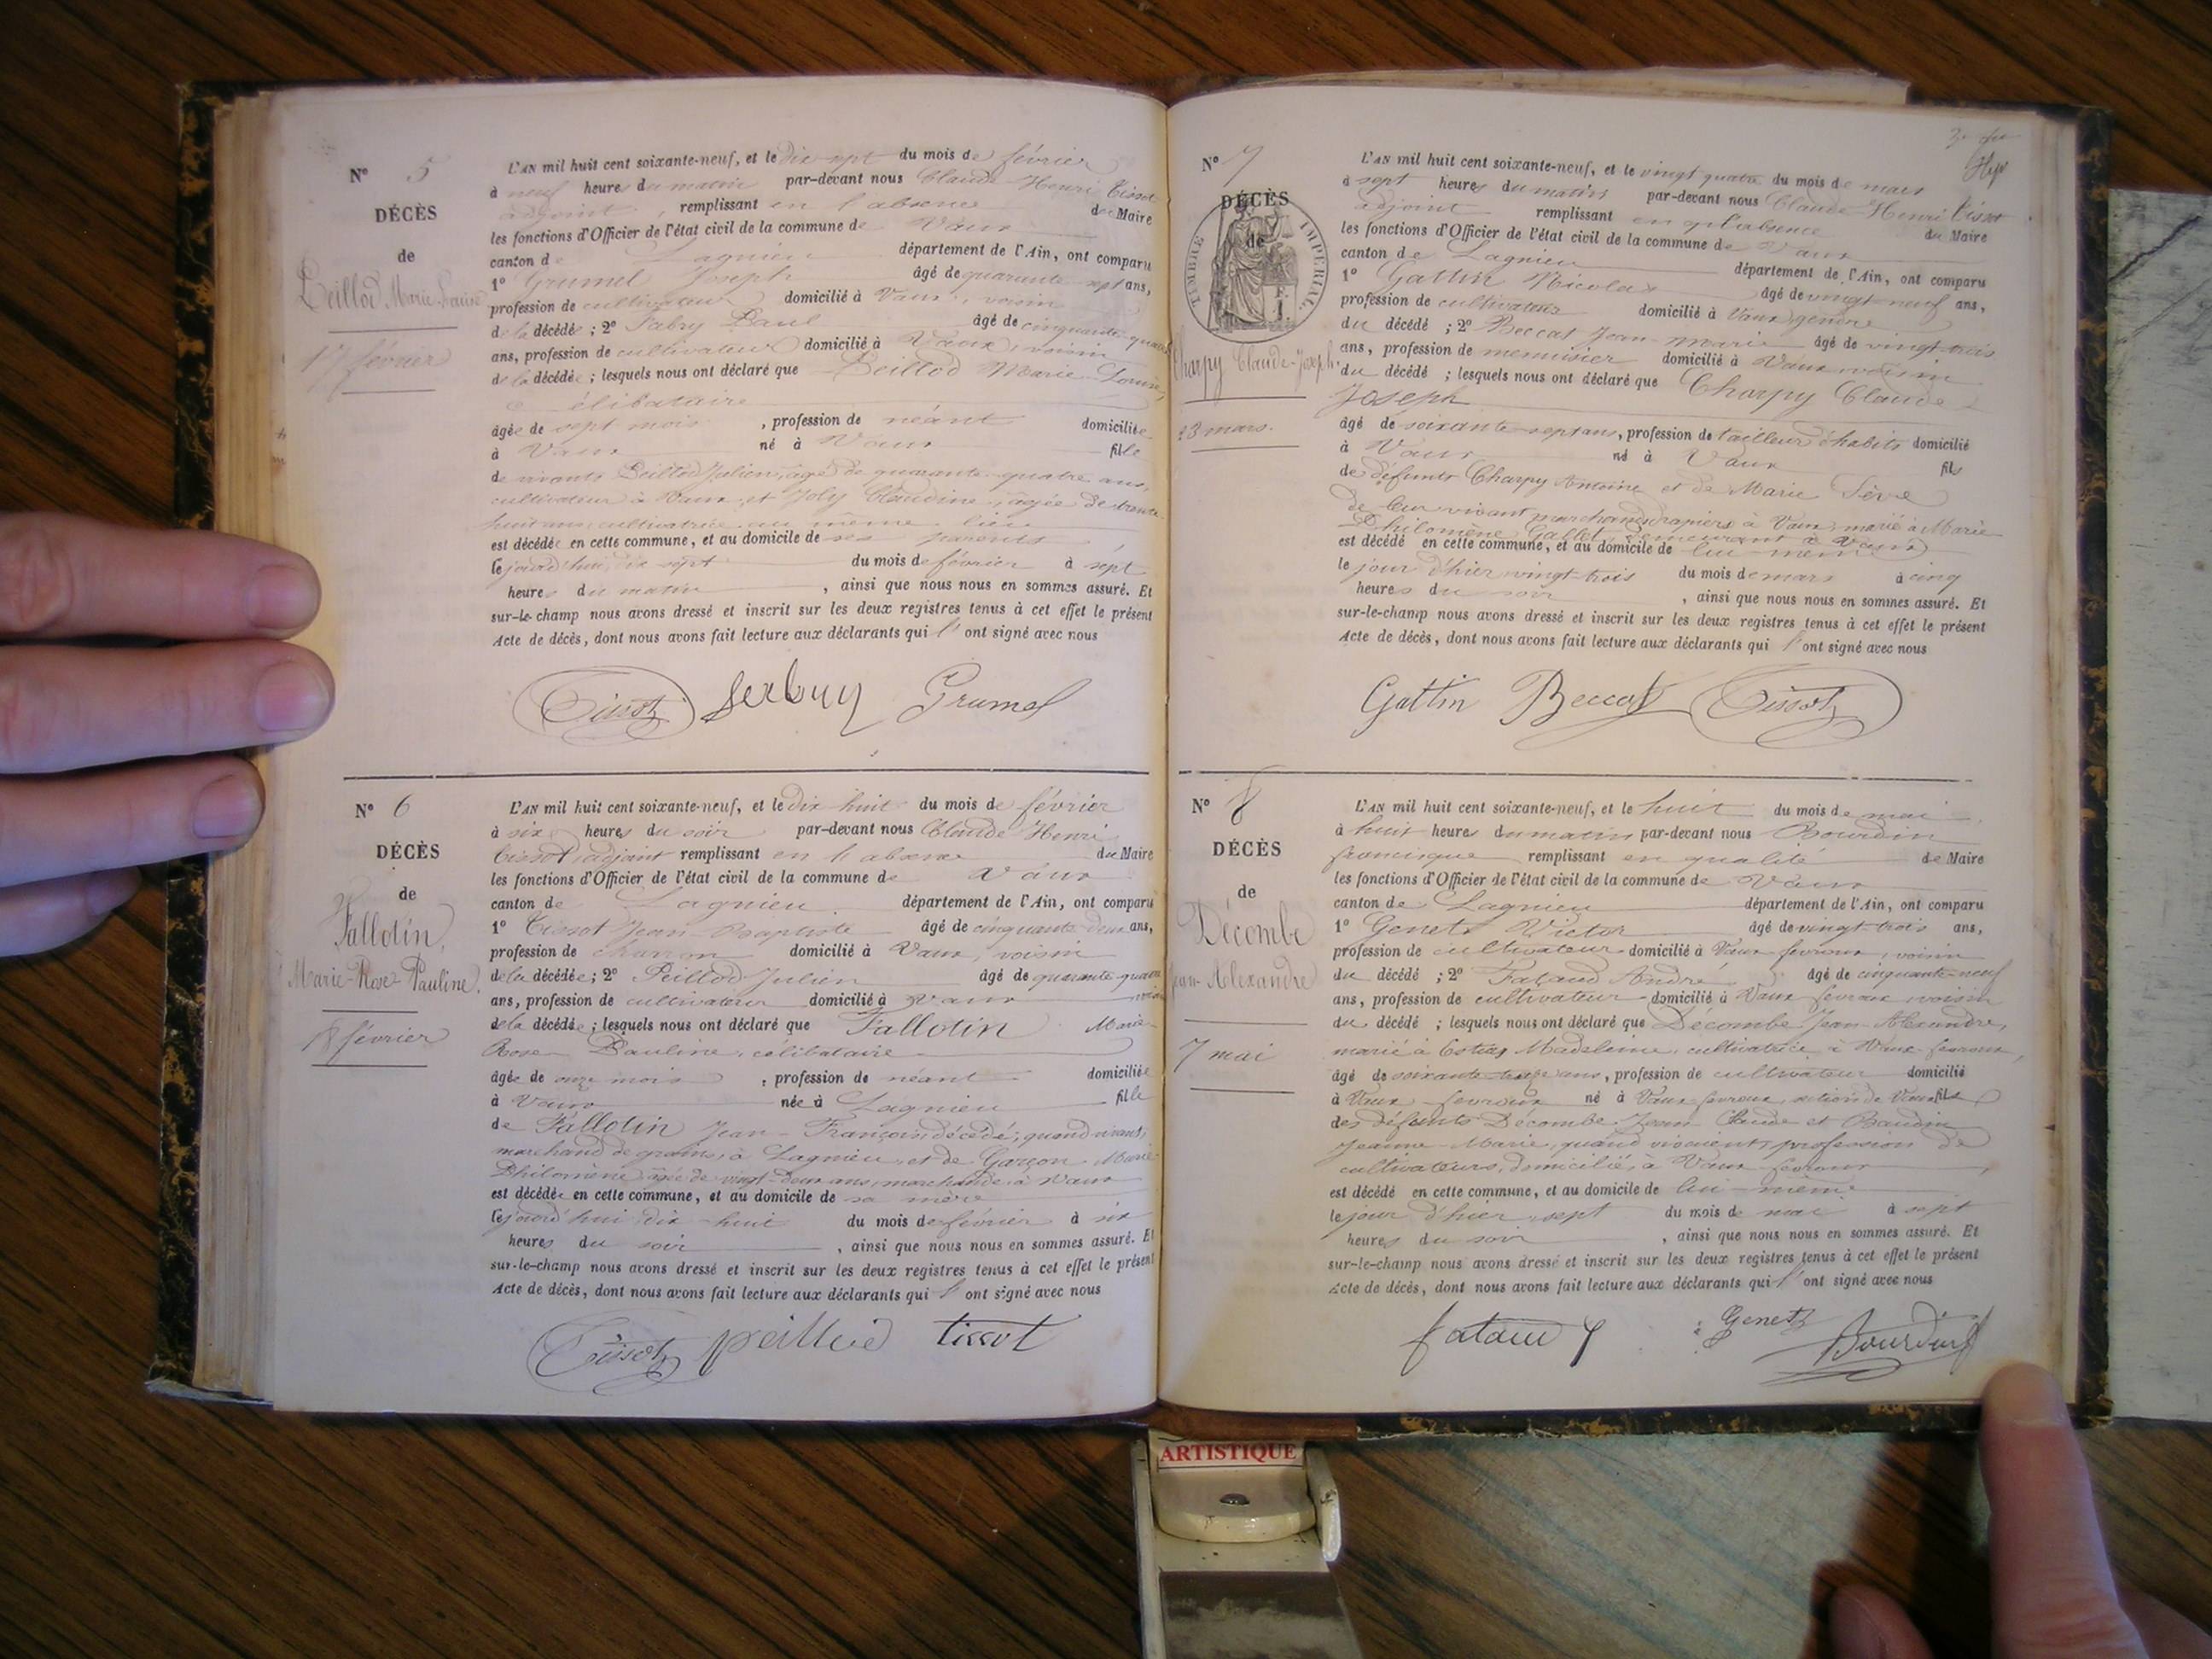 N° 5
DÉCÈS
de
Peillod Marie-Louise
17 février
L'AN mil huit cent soixante-neuf, et le dix-sept du mois de février
à neuf heures du matin par-devant nous Claude Henri Tissot
adjoint, remplissant en l'absence du Maire
les fonctions d'Officier de l'état civil de la commune de Vaux
canton de Lagnieu département de l'Ain, ont comparu
1° Grumel Joseph âgé de quarante-sept ans,
profession de cultivateur domicilié à Vaux, voisin
de la décédée ; 2° Fabry Paul âgé de cinquante-quatre
ans, profession de cultivateur domicilié à Vaux, voisin
de la décédée ; lesquels nous ont déclaré que Peillod Marie-Louise,
célibataire
âgée de sept mois, profession de néant domiciliée
à Vaux né à Vaux fille
de vivants Peillod Julien, âgé de quarante-quatre ans,
cultivateur à Vaux, et Joly Claudine, âgée de trente-
huit ans, cultivatrice au même lieu
est décédée en cette commune, et au domicile de ses parents
le jourd'hui dix sept du mois de février à sept
heures du matin, ainsi que nous nous en sommes assuré. Et
sur-le-champ nous avons dressé et inscrit sur les deux registres tenus à cet effet le présent
Acte de décès, dont nous avons fait lecture aux déclarants qui l'ont signé avec nous
Tissot Grumel
N° 6
DÉCÈS
de
Fallotin,
Marie-Rose-Pauline.
18 février
L'AN mil huit cent soixante-neuf, et le dix huit du mois de février
à six heures du soir par-devant nous Claude Henri
Tissot, adjoint remplissant en l'absence du Maire
les fonctions d'Officier de l'état civil de la commune de Vaux
canton de Lagnieu département de l'Ain, ont comparu
1° Tissot Jean-Baptiste âgé de cinquante-deux ans,
profession de charron domicilié à Vaux, voisin
de la décédée ; 2° Peillod Julien âgé de quarante-quatre
ans, profession de cultivateur domicilié à Vaux voisin
de la décédée ; lesquels nous ont déclaré que Fallotin Marie-
Rose-Pauline, célibataire
âgée de onze mois, profession de néant domiciliée
à Vaux née à Lagnieu fille
de Fallotin Jean-François décédé, quand vivant,
marchand de grains, à Lagnieu, et de Garçon Marie
Philomène âgée de vingt-deux ans, marchande à Vaux
est décédée en cette commune, et au domicile de sa mère
le jourd'hui dix-huit du mois de février à six
heures du soir, ainsi que nous nous en sommes assuré. Et
sur-le-champ nous avons dressé et inscrit sur les deux registres tenus à cet effet le présent
Acte de décès, dont nous avons fait lecture aux déclarants qui l'ont signé avec nous
Tissot peillod tissot
N° 7
DÉCÈS
de
TIMBRE IMPERIAL
Charpy Claude-Joseph.
23 mars.
L'AN mil huit cent soixante-neuf, et le vingt quatre du mois de mars
à sept heures du matin par-devant nous Claude Henri Tissot
adjoint remplissant en l'absence du Maire
les fonctions d'Officier de l'état civil de la commune de Vaux
canton de Lagnieu département de l'Ain, ont comparu
1° Gattin Nicolas âgé de vingt-neuf ans,
profession de cultivateur domicilié à Vaux, gendre
du décédé ; 2° Beccat Jean-Marie âgé de vingt-trois
ans, profession de menuisier domicilié à Vaux voisin
du décédé ; lesquels nous ont déclaré que Charpy Claude
Joseph
âgé de soixante-sept ans, profession de tailleur d'habits domicilié
à Vaux né à Vaux fils
de défunts Charpy Antoine et de Marie Sève
de leur vivant marchands drapiers à Vaux, marié à Marie
Philomène Gallet demeurant à Vaux
est décédé en cette commune, et au domicile de lui même
le jour d'hier vingt-trois du mois de mars à cinq
heures du soir, ainsi que nous nous en sommes assuré. Et
sur-le-champ nous avons dressé et inscrit sur les deux registres tenus à cet effet le présent
Acte de décès, dont nous avons fait lecture aux déclarants qui l'ont signé avec nous
Gattin Beccat Tissot
N° 8
DÉCÈS
de
Décombe
Jean-Alexandre
7 mai
L'AN mil huit cent soixante-neuf, et le huit du mois de mai
à huit heures du matin par-devant nous Bourdin
francisque remplissant en qualité de Maire
les fonctions d'Officier de l'état civil de la commune de Vaux
canton de Lagnieu département de l'Ain, ont comparu
1° Genet Victor âgé de vingt-trois ans,
profession de cultivateur domicilié à Vaux févroux, voisin
du décédé ; 2° Fataud André âgé de cinquante-neuf
ans, profession de cultivateur domicilié à Vaux févroux voisin
du décédé ; lesquels nous ont déclaré que Décombe Jean-Alexandre,
marié à Madeleine, cultivatrice à Vaux févroux,
âgé de ans, profession de cultivateur domicilié
à Vaux févroux né à Vaux févroux, section de Vaux fils
des défunts Décombe Jean Claude et Baudin
Jeanne-Marie, quand vivaient, profession de
cultivateurs, domiciliés à Vaux févroux
est décédé en cette commune, et au domicile de lui-même
le jour d'hier sept du mois de mai à sept
heures du soir, ainsi que nous nous en sommes assuré. Et
sur-le-champ nous avons dressé et inscrit sur les deux registres tenus à cet effet le présent
Acte de décès, dont nous avons fait lecture aux déclarants qui l'ont signé avec nous
fataud Genet Bourdin
ARTISTIQUE